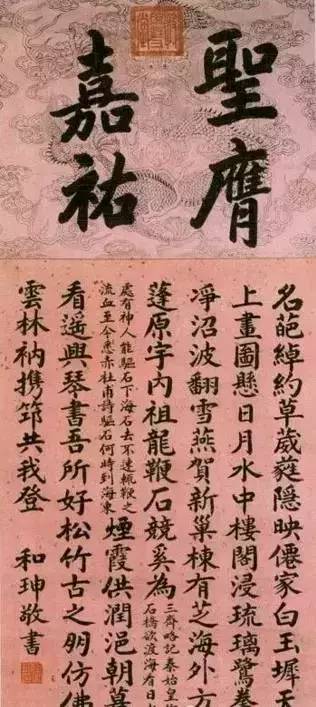 聖膺
嘉祐
名葩綽約草葳蕤隱映僊家白玉墀天
上畫圖懸日月水中樓閣浸琉璃鷺拳
凈沼波翻雪燕賀新巢棟有芝海外方
蓬原宇内祖龍鞭石競奚為
三齊略記秦始皇
石橋欲渡海有日
處有神人能驅石下海石去不速輒鞭之
流血至今悉赤杜甫詩驅石何時到海東
煙霞供潤浥朝暮
看遙興琴書吾所好松竹古之朋仿佛
雲林衲携筇共我登
和珅敬書